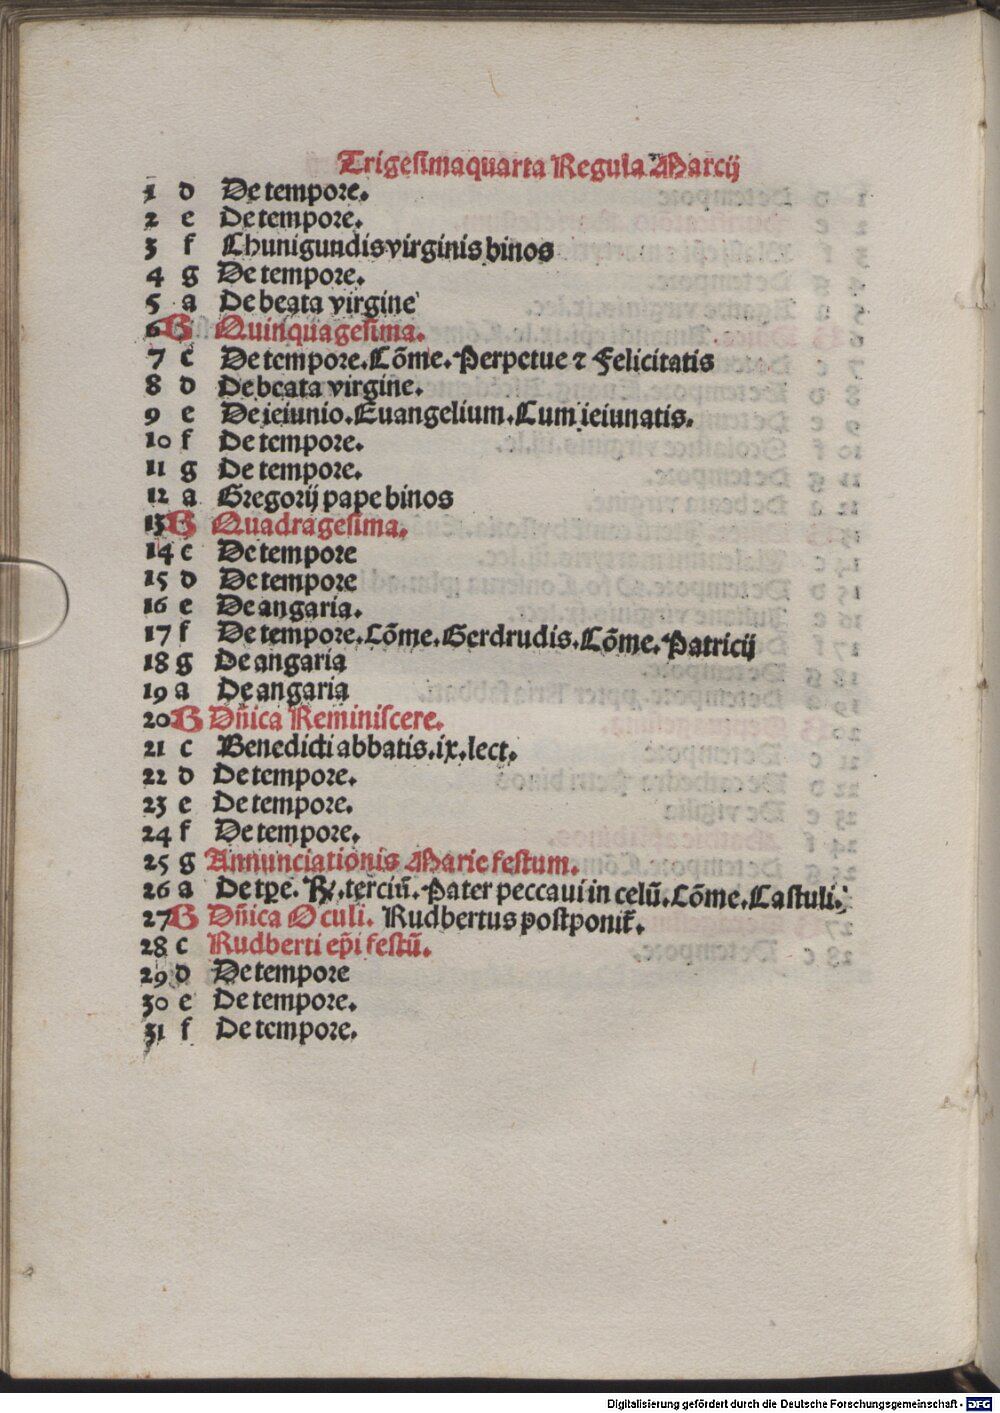 Trigesimaquarta Regula Marcij
1 d De tempore.
2 e De tempore.
3 f Chunigundis virginis binos
4 g De tempore.
5 a De beata virgine
6 B Quinquagesima.
7 c De tempore. Cōme. Perpetue ⁊ Felicitatis
8 d De beata virgine.
9 e De ieiunio. Euangelium. Cum ieiunatis.
10 f De tempore.
11 g De tempore.
12 a Gregorij pape binos
13 B Quadragesima.
14 c De tempore
15 d De tempore
16 e De angaria.
17 f De tempore. Cōme. Gerdrudis. Cōme. Patricij
18 g De angaria
19 a De angaria
20 B Dn̄ica Reminiscere.
21 c Benedicti abbatis. ix. lect.
22 d De tempore.
23 e De tempore.
24 f De tempore.
25 g Annunciationis Marie festum.
26 a De tp̄e. ℟. terciū. Pater peccaui in celū. Cōme. Castuli.
27 B Dn̄ica Oculi. Rudbertus postponit̄.
28 c Rudberti ep̄i festū.
29 d De tempore
30 e De tempore.
31 f De tempore.
Digitalisierung gefördert durch die Deutsche Forschungsgemeinschaft - DFG